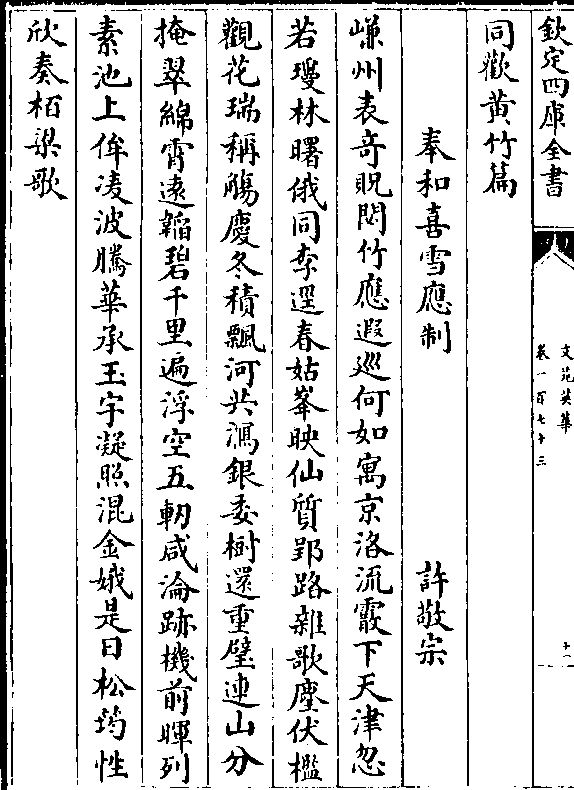 欽定四庫全書
文苑英華
卷一百七十三
十一
同歡黄竹篇
奉和喜雪應制
許敬宗
嵊州表奇貺閟竹應遐巡何如寓京洛流霰下天津忽
若瓊林曙俄同李逕春姑峯映仙質郢路雜歌塵伏檻
觀花瑞稱觴慶冬積飄河共瀉銀委樹還重璧連山分
掩翠綿霄遠韜碧千里遍浮空五軔咸淪跡機前暉列
素池上侔凌波騰華承玉宇凝照混金娥是日松筠性
欣奏栢梁歌